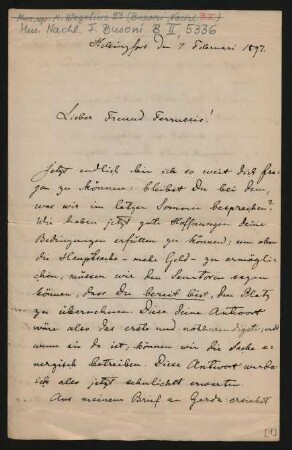 Mus. ep. M. Wegelius 23 (Busoni-Nachl.
Mus. Nachl. F. Busoni B II 5336
Helsingfors den 7 Februari 1897.
Lieber Freund Ferruccio!
Jetzt endlich bin ich so weit Dich fra-
gen zu können: bleibst Du bei dem,
was wir im letzen Sommer besprachen?
Wir haben jetzt gute Hoffnungen deine
Bedingungen erfüllen zu können; um aber
die Hauptsache – mehr Geld – zu ermögli-
chen, müssen wir den Senatoren sagen
können, dass Du bereit bist, den Platz
zu übernehmen. Diese deine Antwort
wäre also das erste und nothwendigste, und
wenn sie da ist, können wir die Sache e-
nergisch betreiben. Diese Antwort werde
ich also jetzt sehnlichst erwarten.
Aus meinem Brief an Gerda ersiehst
[1]